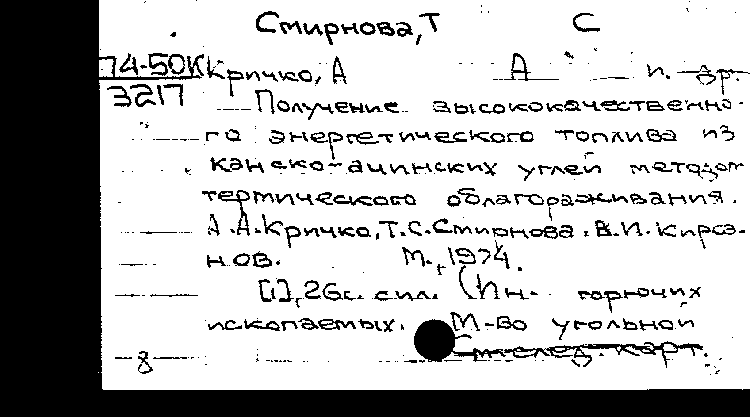 Смирнова, Т С
74-50К Кричко, А А и. др.
3217 Получение высококачественно-
го энергетического топлива из
канско-ачинских углей методом
термического облагораживания.
А.А.Кричко, Т.С.Смирнова, В.И.Кирса-
нов. М., 1974.
[1], 26с. с ил. (Ин-т горючих
ископаемых. М-во угольной
См. след. карт.
8